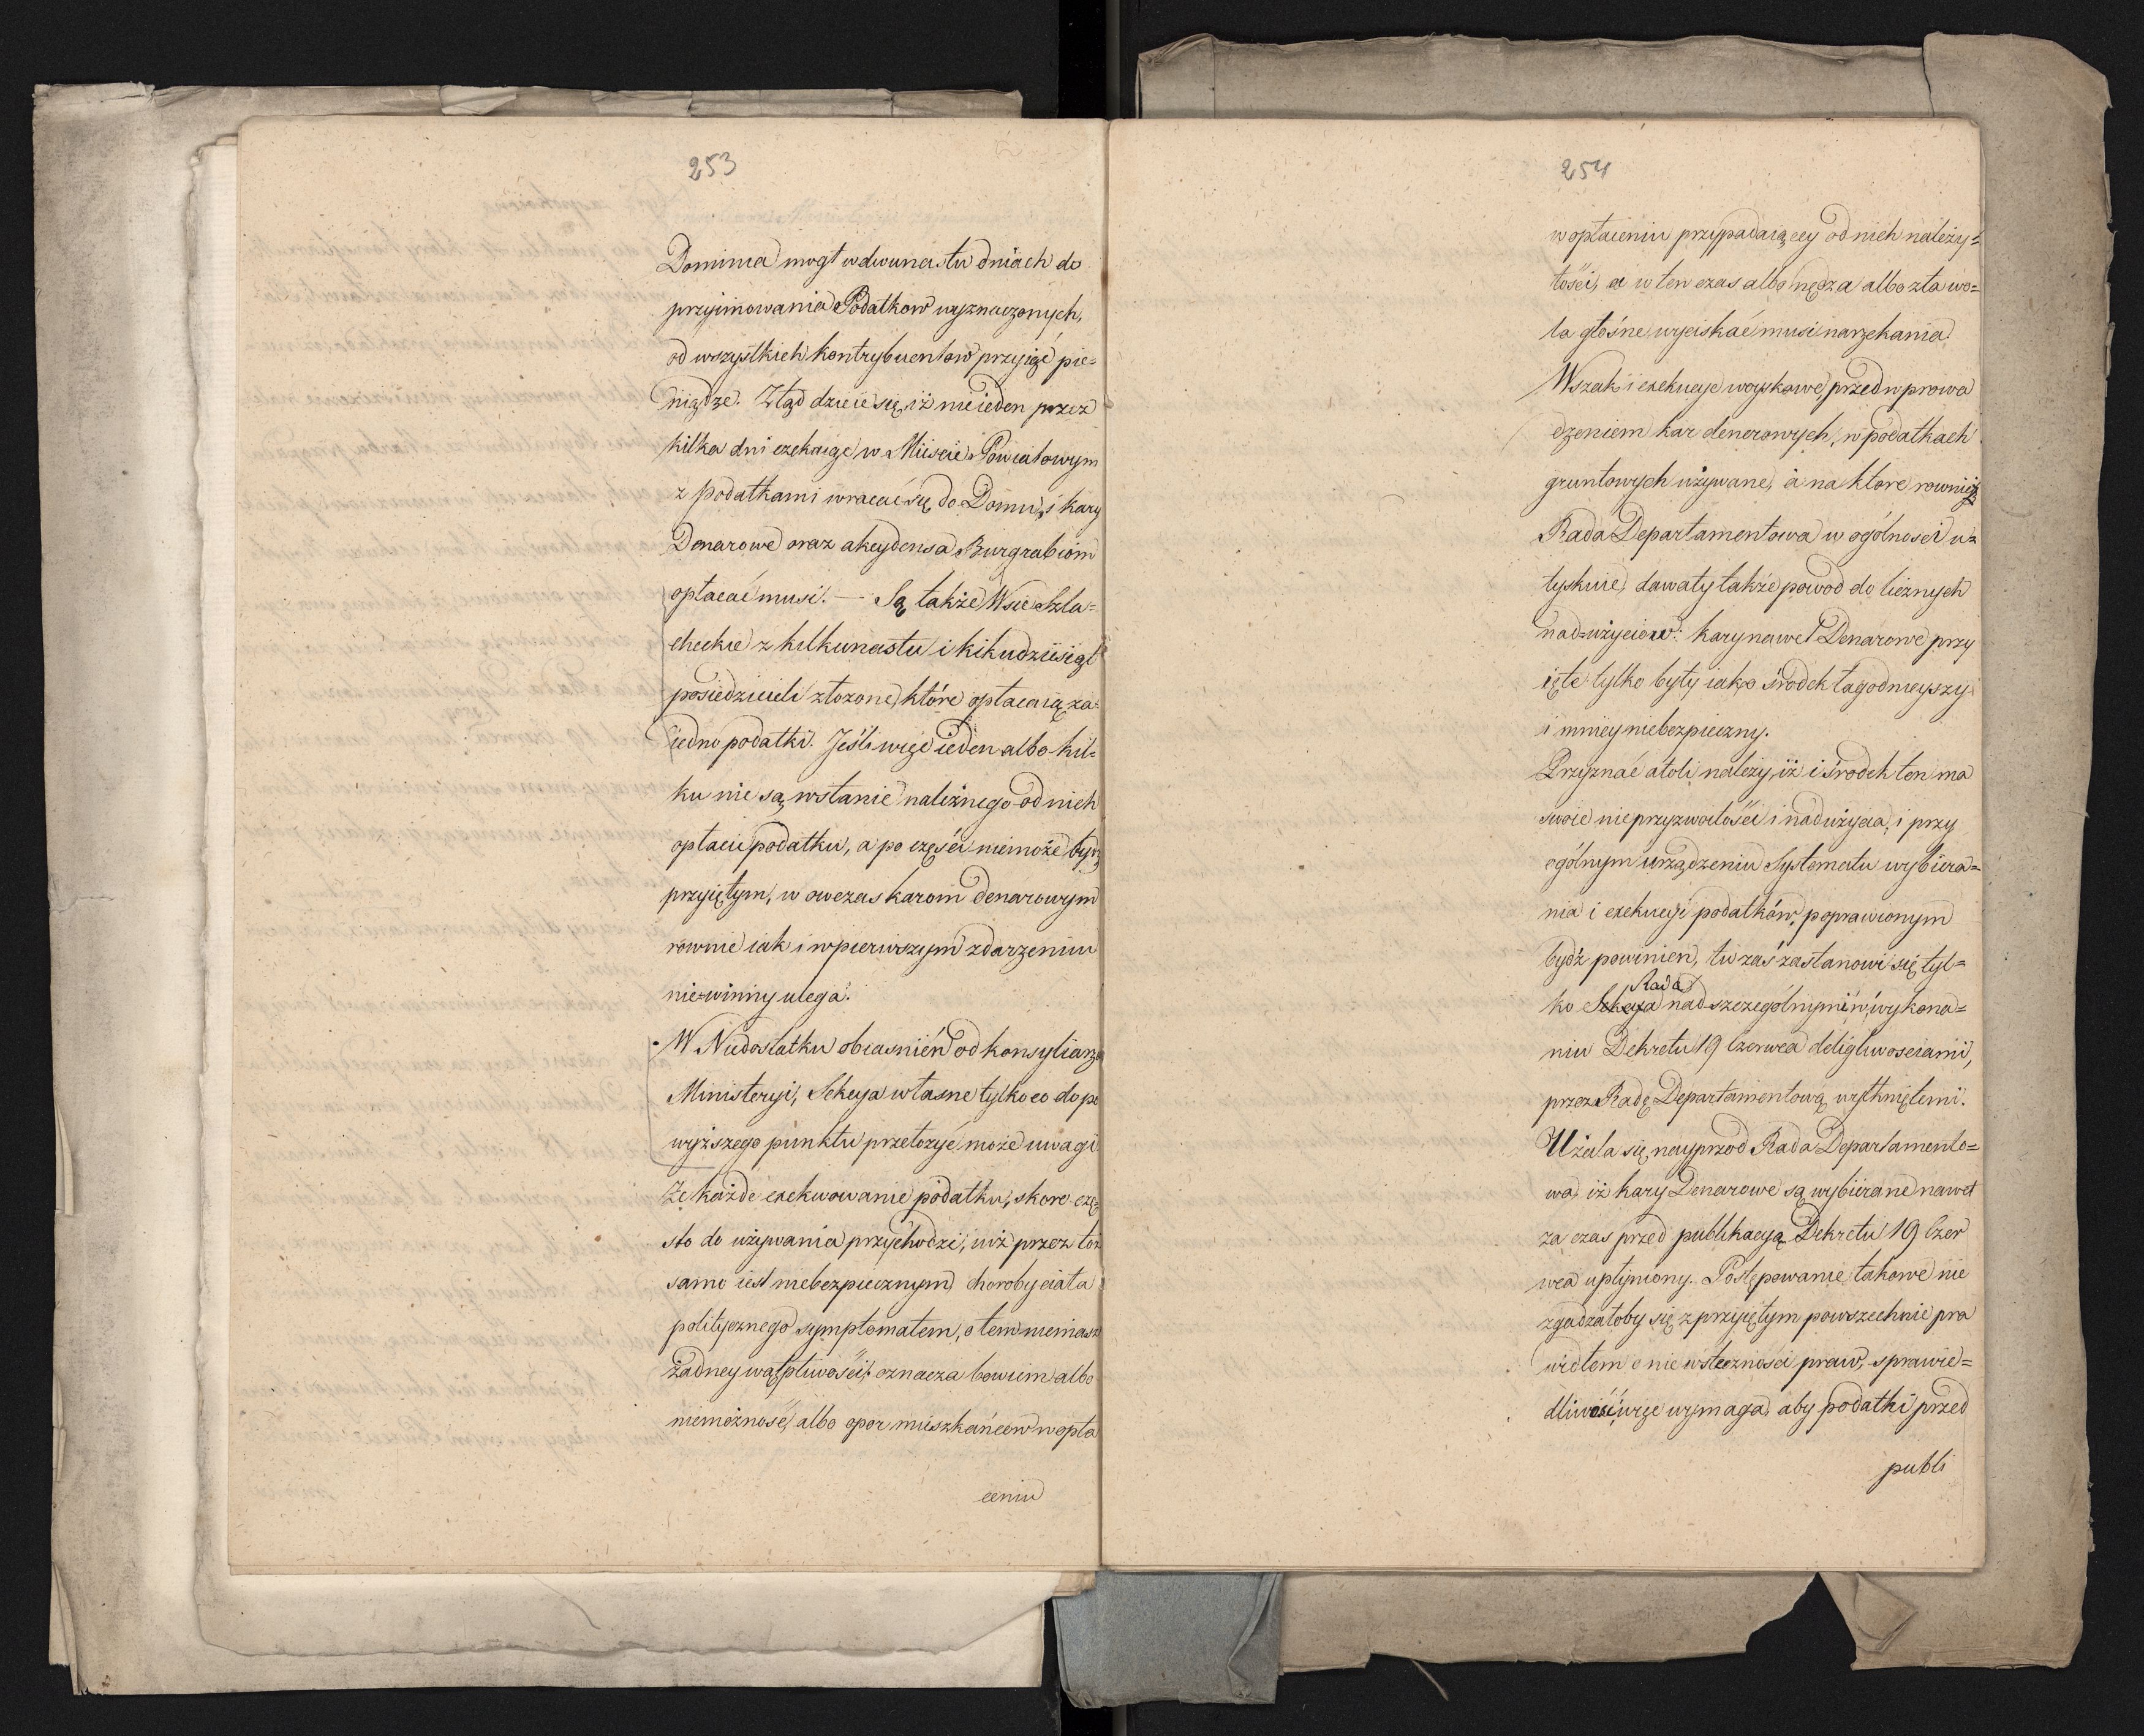 253
Dominia mogł w dwunastu dniach do
przyimowania Podatkow wyznaczonych,
od wszystkich kontrybuentow przyiąć pie=
niądze. Ztąd dzieie się, iż nieieden przez
kilka dni czekaiąc w Mieście Powiatowym
z podatkami wracać się do Domu, i kary
Denarowe oraz akcydensa Burgrabiom
opłacać musi. — Są także Wsie Szla=
checkie z kilkunastu i kikudziesiąt
posiedzicieli złożone, które opłacaią za
iedno podatki. Jeśli więc ieden albo kil=
ku nie są wstanie należnego od nich
opłacić podatku, a po części niemoże bydź
przyiętym, w owczas karom denarowym
rownie iak i w pierwszym zdarzeniu
nie=winny ulega.
W Niedostatku obiasnień od konsyliarza
Ministeryi, Sekcya własne tylko co do po
wyższego punktu przełożyć może uwagi.
Że każde exekwowanie podatku, skoro czę
sto do używania przychodzi, iuż przez toż
samo iest niebezpiecznym choroby ciała
politycznego symptomatem, o tem niemasz
żadney wątpliwości; oznacza bowiem albo
niemożność, albo opor mieszkańcow w opła
ceniu
254
w opłaceniu przypadaiącey od nich należy=
tości, a w ten czas albo nędza albo zła wo=
la głośne wyciskać musi narzekania.
Wszak i exekucye woyskowe przed wprowa
dzeniem kar denerowych, w podatkach
gruntowych używane, a na ktore rownież
Rada Departamentowa w ogólnosci u=
tyskuie, dawały także powod do licznych
nad=użyciow: kary nawet Denarowe przy
ięte tylko były iako środek łagodnieyszy
i mniey niebezpieczny.
Przyznać atoli należy, iż i środek ten ma
swoie nieprzyzwoitości i nadużycia, i przy
ogólnym urządzeniu Systematu wybiera=
nia i exekucyi podatków, poprawionym
bydź powinien, tu zaś zastanowi się tyl=
Rada
ko Sekcya nad szczególnymi w wykona=
niu Dekretu 19 Czerwca doligliwosciami,
przez Radę Departamentową wytkniętemi.
Użala się nayprzod Rada Departamento=
wa, iż kary Denarowe są wybierane nawet
za czas przed publikacyą Dekretu 19 Czer
wca upłyniony. Postępowanie takowe nie
zgadzałoby się z przyiętym powszechnie pra
widłem o nie wsteczności praw, sprawie=
dliwość więc wymaga, aby podatki przed
publi